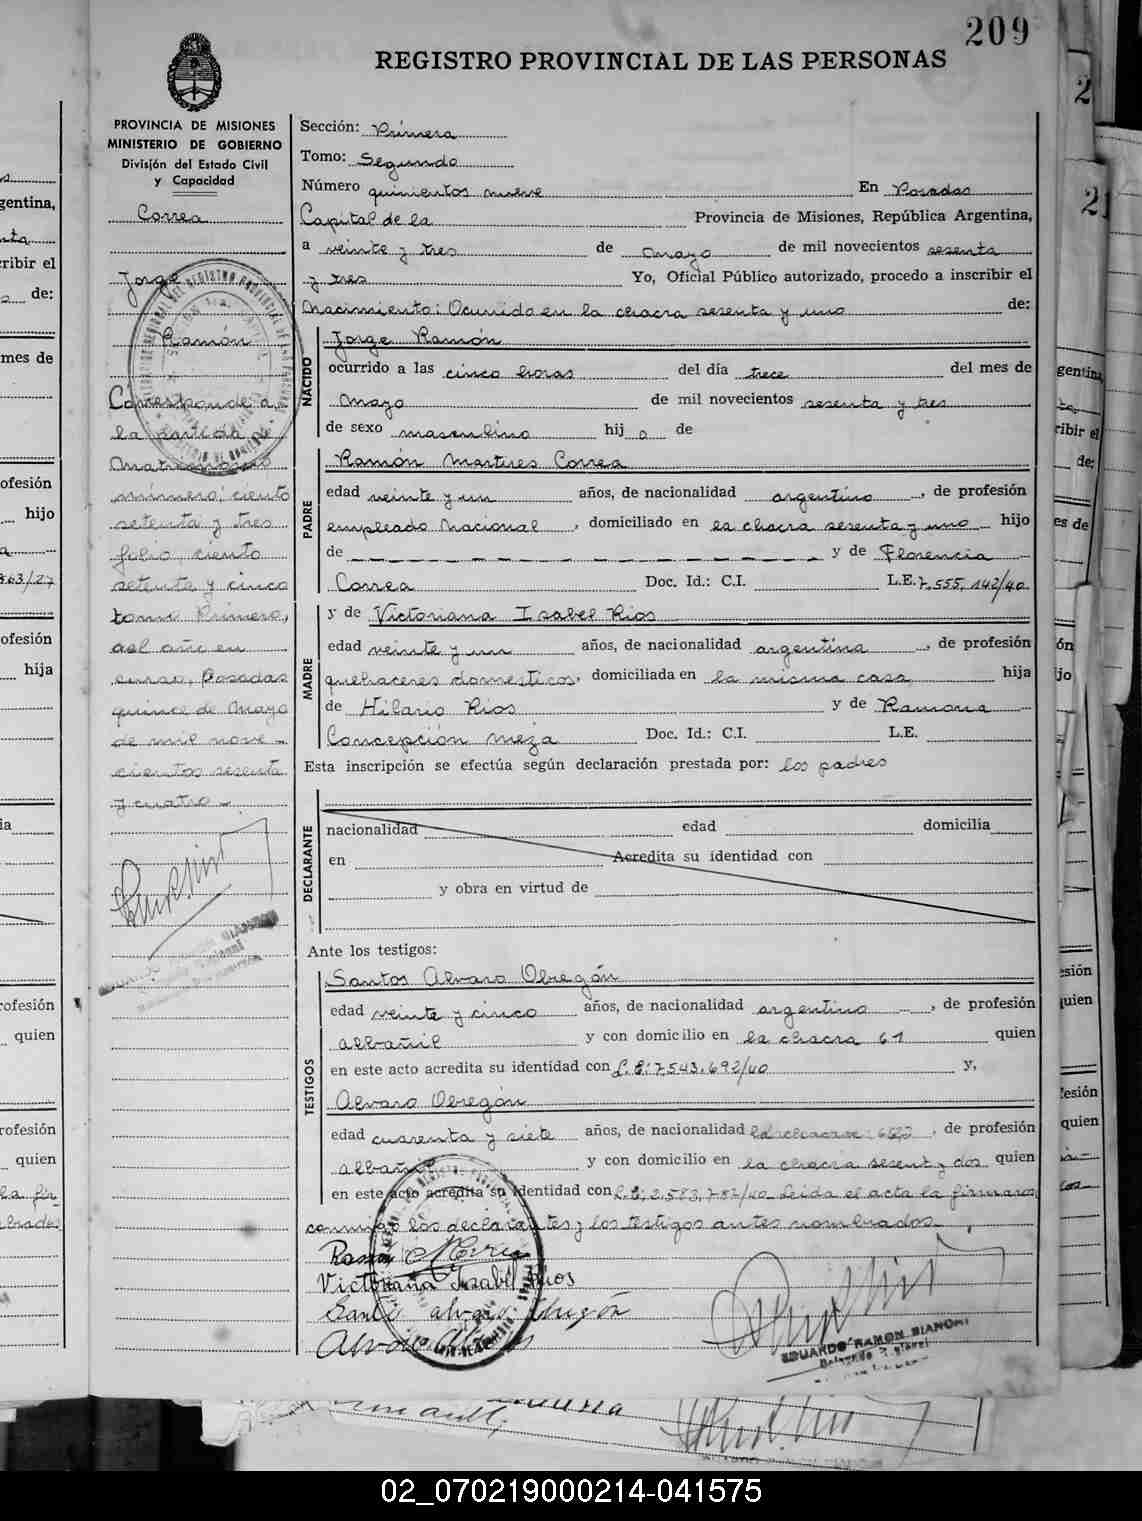 209
REGISTRO PROVINCIAL DE LAS PERSONAS
PROVINCIA DE MISIONES
MINISTERIO DE GOBIERNO
División del Estado Civil
y Capacidad
Correa
Jorge
Ramón
Corresponde a
la partida de
Matrimonio
número, ciento
setenta y tres
folio, ciento
setenta y cinco
tomo Primero,
del año en
curso, Posadas
quince de Mayo
de mil nove-
cientos sesenta
y cuatro.-
Sección: Primera
Tomo: Segundo
Número quinientos nueve En Posadas
Capital de la Provincia de Misiones, República Argentina,
a veinte y tres de mayo de mil novecientos sesenta
y tres Yo, Oficial Público autorizado, procedo a inscribir el
Nacimiento: Ocurrido en la chacra sesenta y uno de:
NACIDO
Jorge Ramón
ocurrido a las cinco horas del día trece del mes de
Mayo de mil novecientos sesenta y tres
de sexo masculino hijo de
PADRE
Ramón Martires Correa
edad veinte y un años, de nacionalidad argentino, de profesión
empleado Nacional, domiciliado en la chacra sesenta y uno hijo
de - - - - - - - - - - y de Florencia
Correa Doc. Id.: C.I. L.E. 7.555.142/40
MADRE
y de Victoriana Isabel Rios
edad veinte y un años, de nacionalidad argentina, de profesión
quehaceres domesticos, domiciliada en la misma casa hija
de Hilario Rios y de Ramona
Concepción Meza Doc. Id.: C.I. L.E.
Esta inscripción se efectúa según declaración prestada por: los padres
DECLARANTE
nacionalidad edad domicilia
en Acredita su identidad con
y obra en virtud de
Ante los testigos:
TESTIGOS
Santos Alvaro Obregón
edad veinte y cinco años, de nacionalidad argentino, de profesión
albañil y con domicilio en la chacra 61 quien
en este acto acredita su identidad con L.E; 7.543.692/40 y,
Alvaro Obregón
edad cuarenta y siete años, de nacionalidad , de profesión
albañil y con domicilio en la chacra sesent y dos quien
en este acto acredita su identidad con L.E; 2.583.787/40 Leida el acta la firmaron
conmigo los declarantes y los testigos antes nombrados.-
Victoriana Isabel Rios
EDUARDO RAMON BIANCHI
02_070219000214-041575